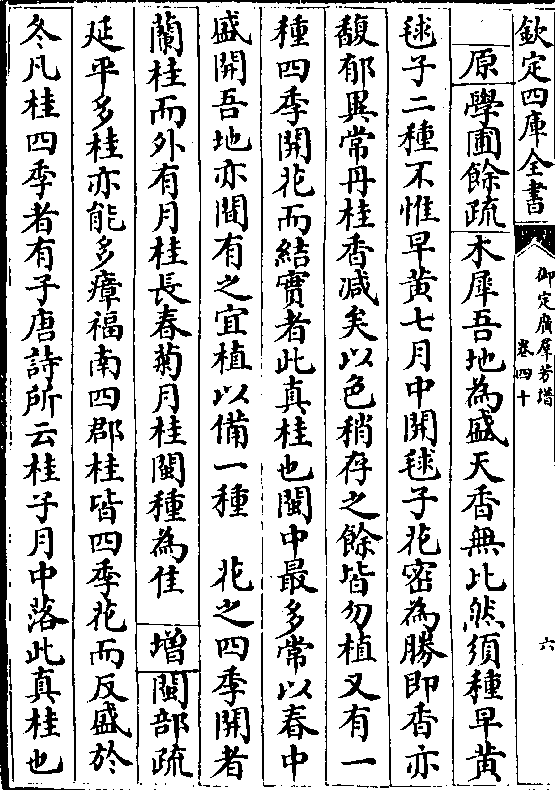 欽定四庫全書
御定廣羣芳譜
卷四十
六
原學圃餘疏木犀吾地為盛天香無比然須種早黃
毬子二種不惟早黃七月中開毬子花密為勝即香亦
馥郁異常丹桂香减矣以色稍存之餘皆勿植又有一
種四季開花而結實者此真桂也閩中最多常以春中
盛開吾地亦間有之宜植以備一種 花之四季開者
蘭桂而外有月桂長春菊月桂閩種為佳 增閩部疏
延平多桂亦能多瘴福南四郡桂皆四季花而反盛於
冬凡桂四季者有子唐詩所云桂子月中落此真桂也